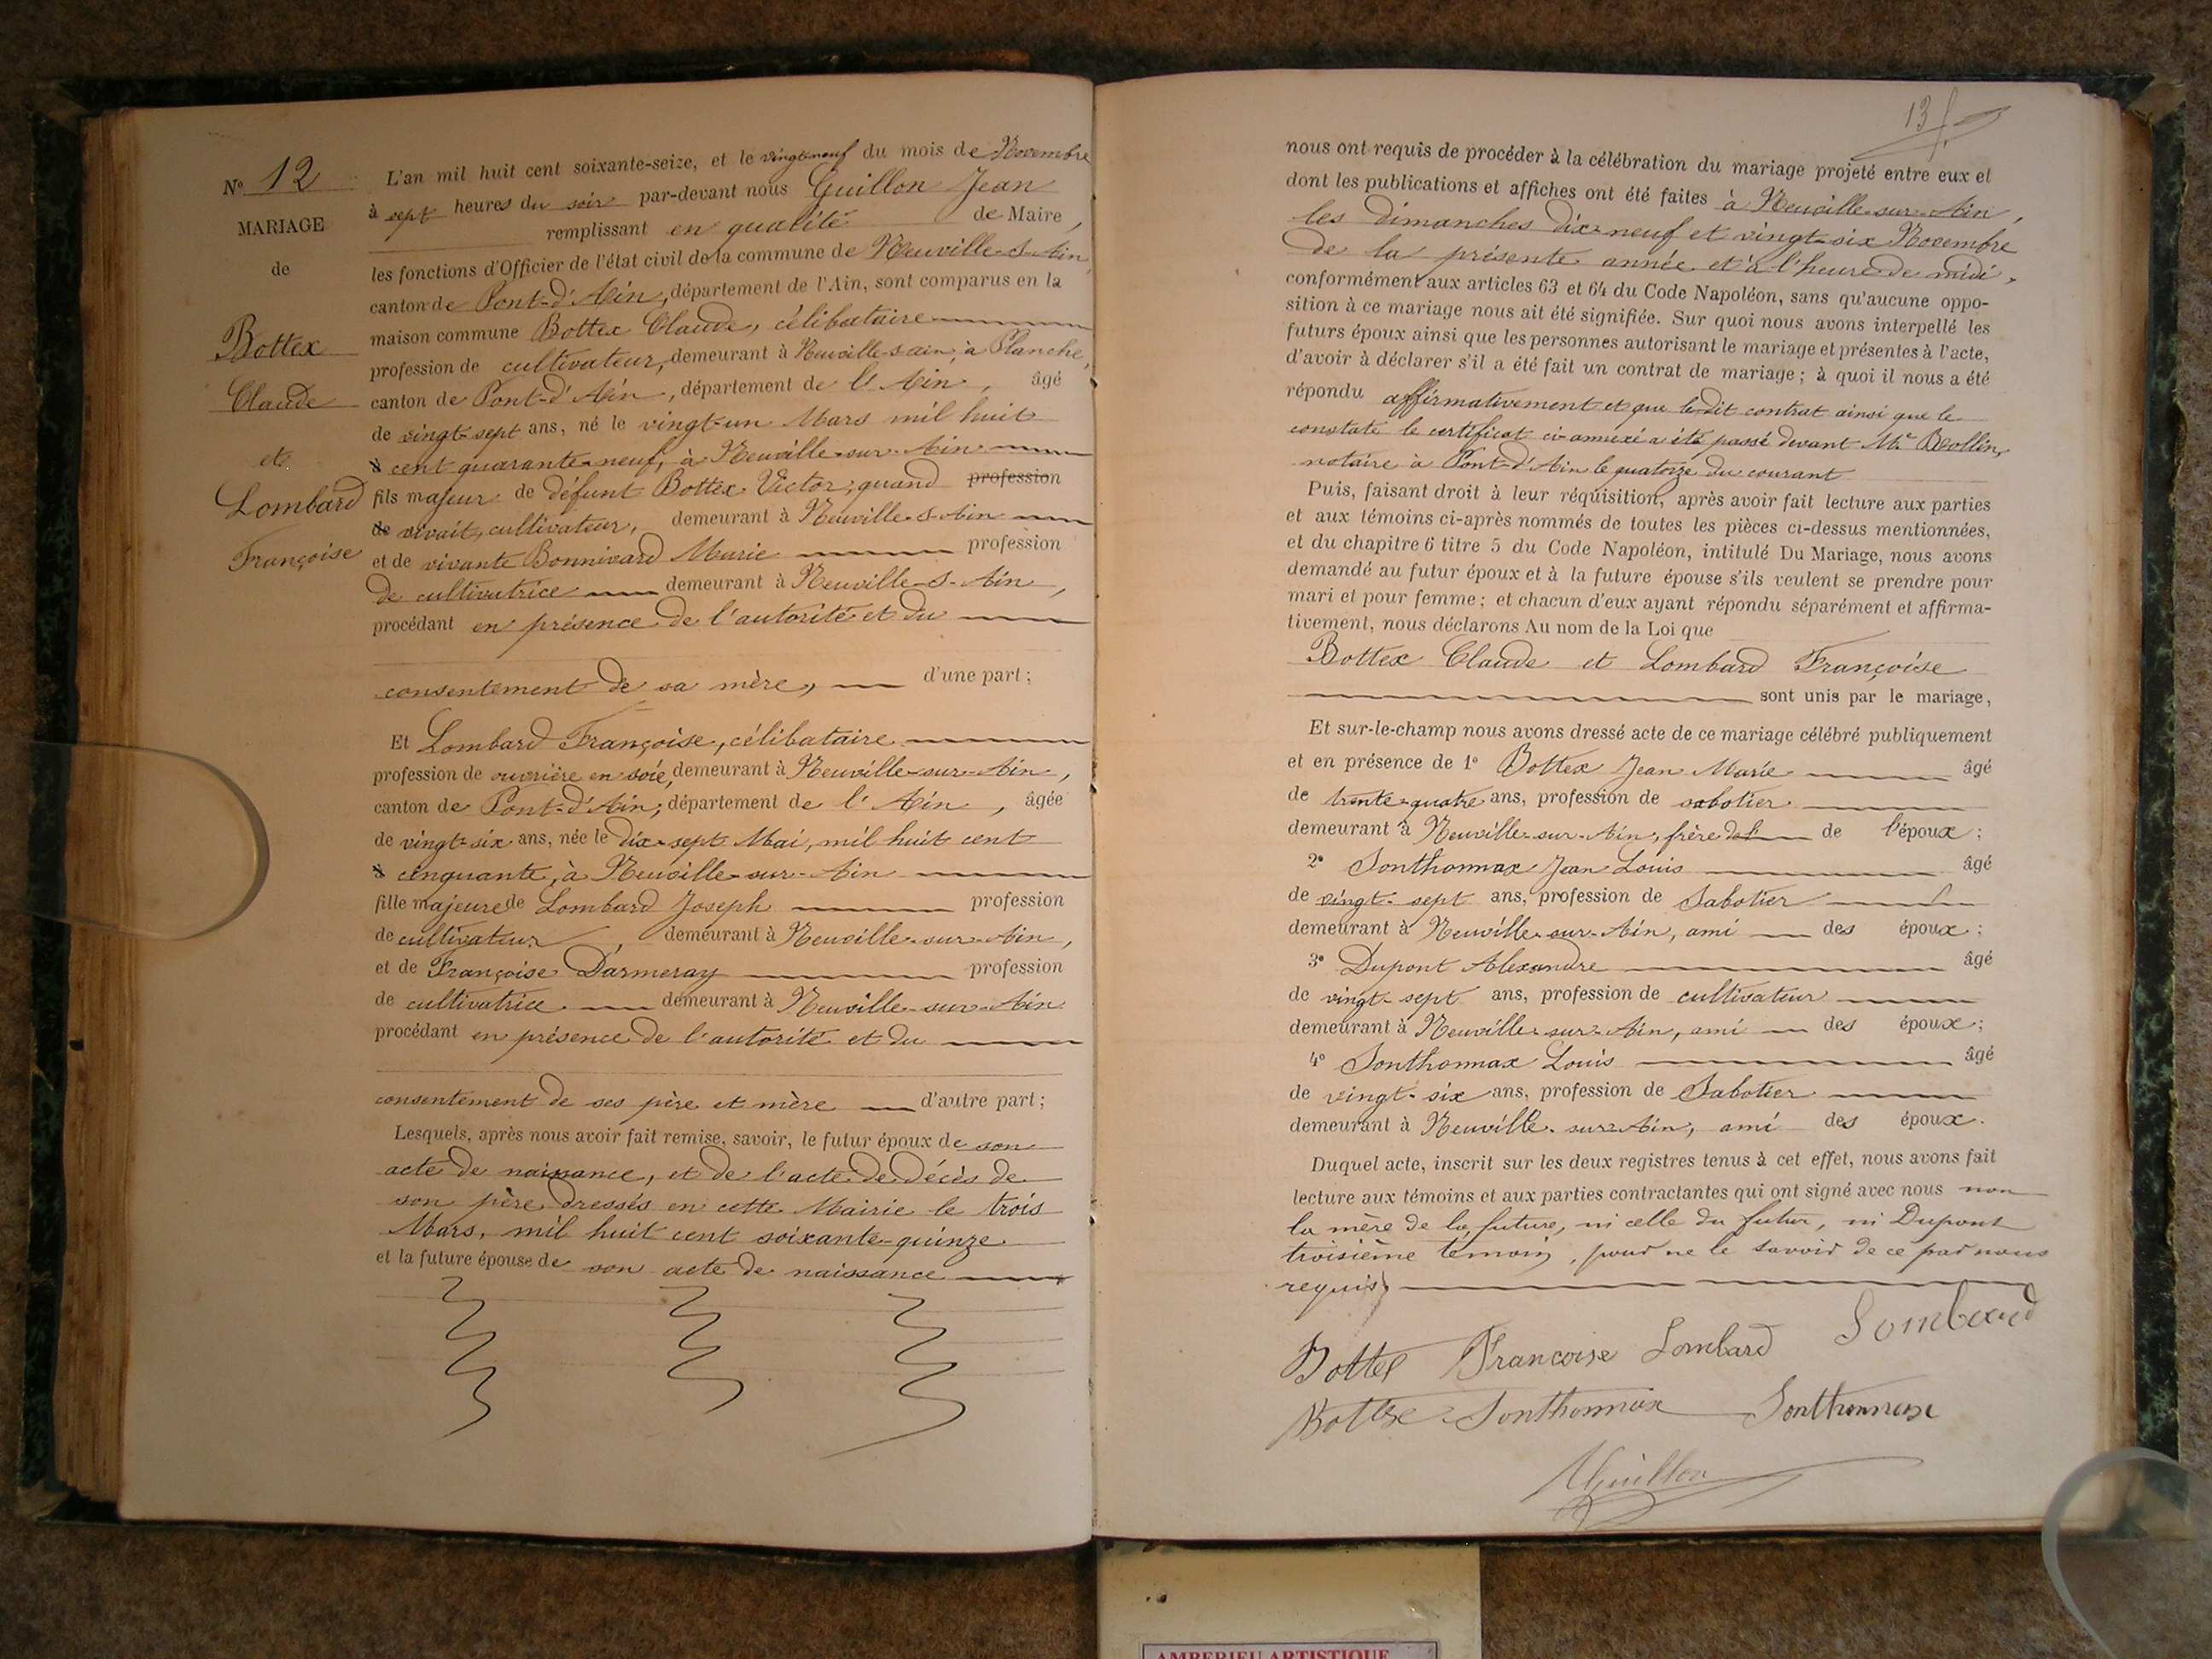 N° 12
MARIAGE
de
Bottex
Claude
et
Lombard
Françoise
L'an mil huit cent soixante-seize, et le vingt-neuf du mois de Novembre
à sept heures du soir par-devant nous Guillon Jean
remplissant en qualité de Maire,
les fonctions d'Officier de l'état civil de la commune de Neuville-s-Ain,
canton de Pont-d'Ain, département de l'Ain, sont comparus en la
maison commune Bottex Claude, célibataire
profession de cultivateur, demeurant à Neuville-s-ain, à Planche,
canton de Pont-d'Ain, département de l'Ain, âgé
de vingt-sept ans, né le vingt-un Mars mil huit
à cent quarante-neuf, à Neuville-sur-Ain
fils majeur de défunt Bottex Victor, quand profession
de vivait, cultivateur, demeurant à Neuville-s-Ain
et de vivante Bonnivard Marie profession
de cultivatrice demeurant à Neuville-s-Ain,
procédant en présence de l'autorité et du
consentement de sa mère, d'une part;
Et Lombard Françoise, célibataire
profession de ouvrière en soie, demeurant à Neuville-sur-Ain,
canton de Pont-d'Ain, département de l'Ain, âgée
de vingt-six ans, née le dix-sept Mai, mil huit cent
à cinquante, à Neuville-sur-Ain
fille majeure de Lombard Joseph profession
de cultivateur, demeurant à Neuville-sur-Ain,
et de Françoise Darmeray profession
de cultivatrice demeurant à Neuville-sur-Ain
procédant en présence de l'autorité et du
consentement de ses père et mère d'autre part;
Lesquels, après nous avoir fait remise, savoir, le futur époux de son
acte de naissance, et de l'acte de décès de
son père dressés en cette Mairie le trois
Mars, mil huit cent soixante-quinze
et la future épouse de son acte de naissance
13
nous ont requis de procéder à la célébration du mariage projeté entre eux et
dont les publications et affiches ont été faites à Neuville-sur-Ain,
les dimanches dix-neuf et vingt-six Novembre
de la présente année et à l'heure de midi,
conformément aux articles 63 et 64 du Code Napoléon, sans qu'aucune oppo-
sition à ce mariage nous ait été signifiée. Sur quoi nous avons interpellé les
futurs époux ainsi que les personnes autorisant le mariage et présentes à l'acte,
d'avoir à déclarer s'il a été fait un contrat de mariage; à quoi il nous a été
répondu affirmativement et que ledit contrat ainsi que le
constate le certificat ci-annexé a été passé devant Me
notaire à Pont-d'Ain le quatorze du courant
Puis, faisant droit à leur réquisition, après avoir fait lecture aux parties
et aux témoins ci-après nommés de toutes les pièces ci-dessus mentionnées,
et du chapitre 6 titre 5 du Code Napoléon, intitulé Du Mariage, nous avons
demandé au futur époux et à la future épouse s'ils veulent se prendre pour
mari et pour femme; et chacun d'eux ayant répondu séparément et affirma-
tivement, nous déclarons Au nom de la Loi que
Bottex Claude et Lombard Françoise
sont unis par le mariage,
Et sur-le-champ nous avons dressé acte de ce mariage célébré publiquement
et en présence de 1° Bottex Jean Marie âgé
de trente-quatre ans, profession de sabotier
demeurant à Neuville-sur-Ain, frère de l'époux;
2° Sonthonnax Jean Louis âgé
de vingt-sept ans, profession de Sabotier
demeurant à Neuville-sur-Ain, ami des époux;
3° Dupont Alexandre âgé
de vingt-sept ans, profession de cultivateur
demeurant à Neuville-sur-Ain, ami des époux;
4° Sonthonnax Louis âgé
de vingt-six ans, profession de Sabotier
demeurant à Neuville-sur-Ain, ami des époux.
Duquel acte, inscrit sur les deux registres tenus à cet effet, nous avons fait
lecture aux témoins et aux parties contractantes qui ont signé avec nous non
la mère de la future, ni celle du futur, ni Dupont
troisième témoin, pour ne le savoir de ce par nous
requis
Bottex Françoise Lombard Lombard
Bottex Sonthonnax Sonthonnax
Guillon
AMBERIEU ARTISTIQUE